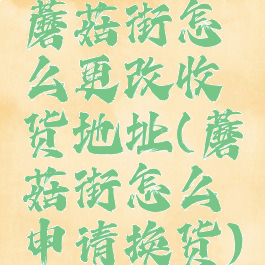 蘑菇街怎
么更改收
货地址(蘑
菇街怎么
申请换货)